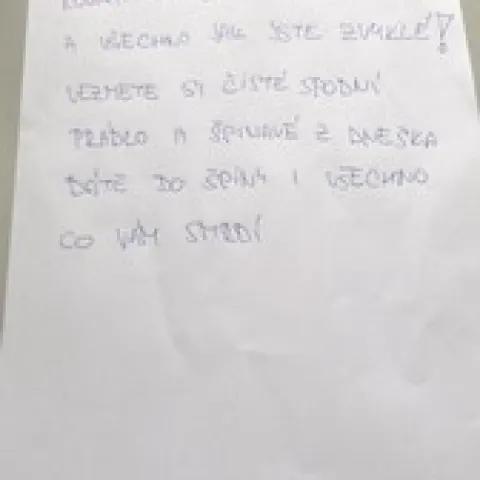 A VŠECHNO JAK JSTE ZVYKLÉ!
VEZMĚTE SI ČISTÉ SPODNÍ
PRÁDLO A ŠPINAVÉ Z DNEŠKA
DEJTE DO ŠPÍNY I VŠECHNO
CO VÁM SMRDÍ